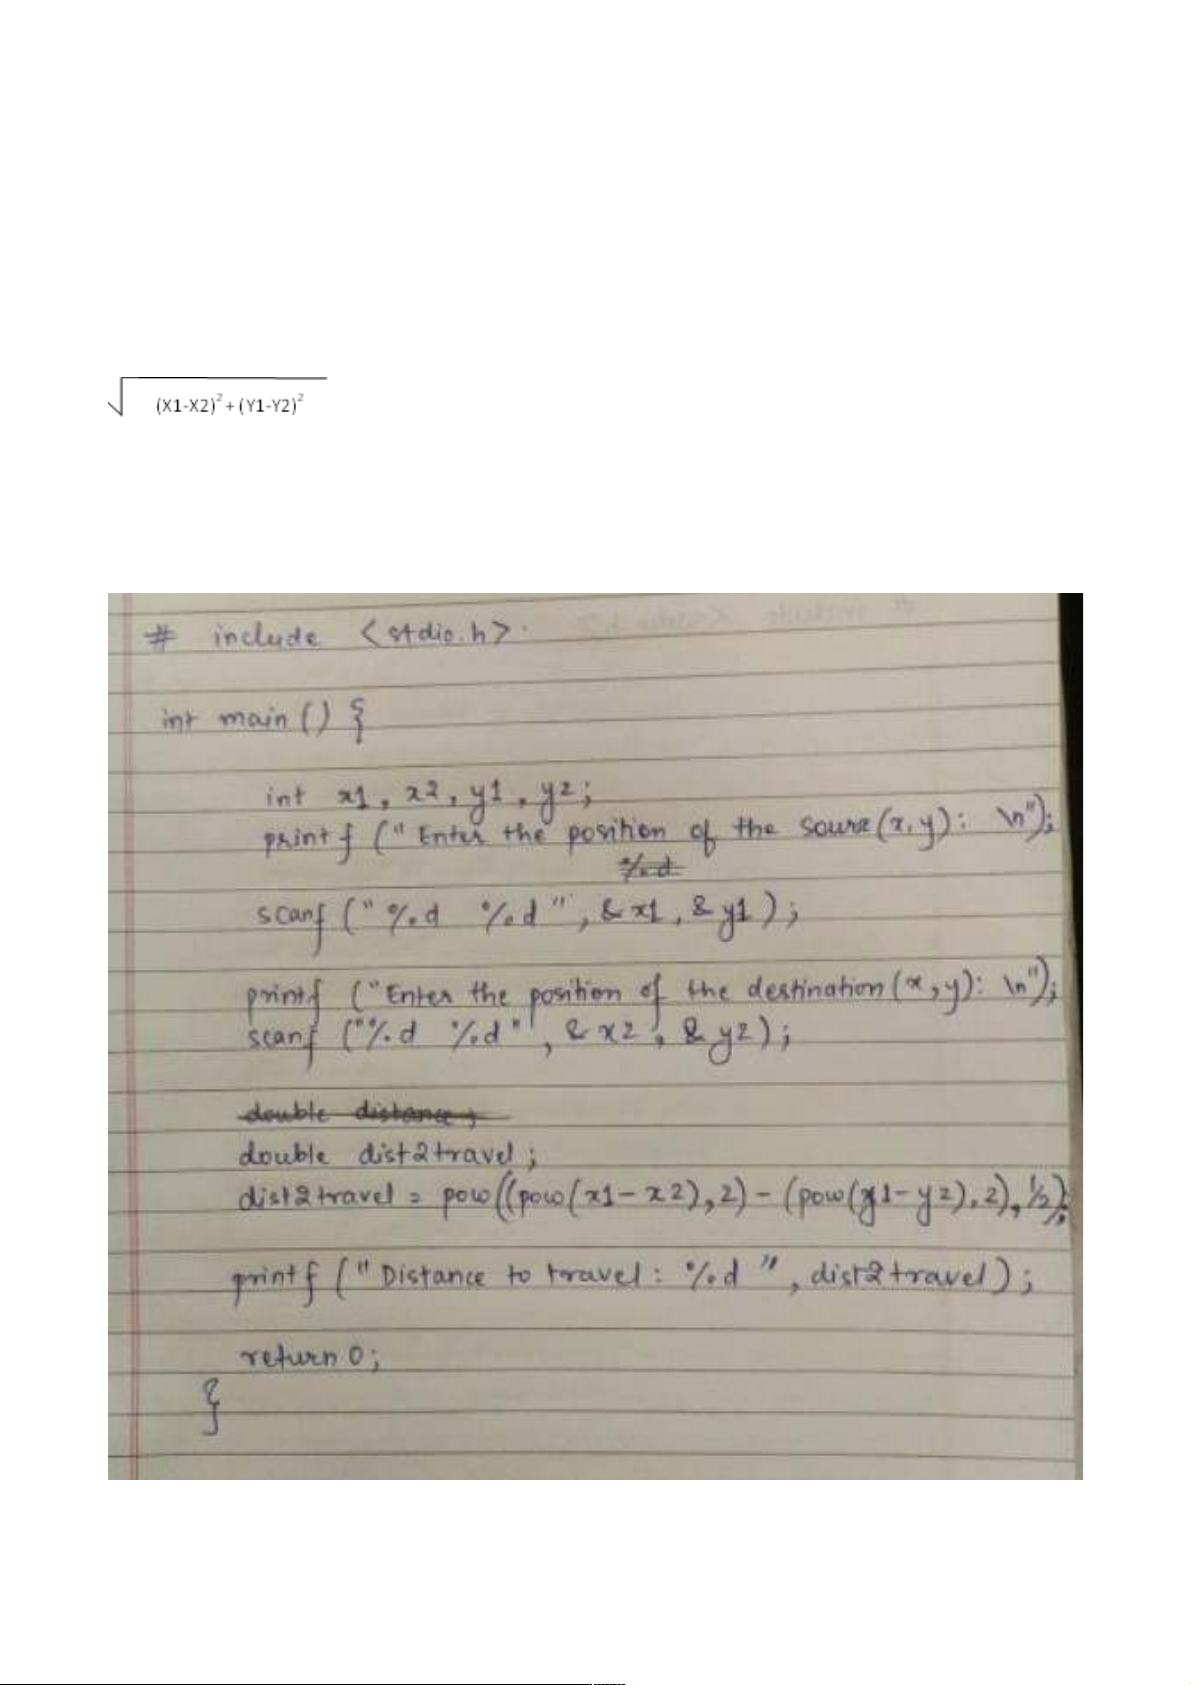 √(X1-X2)²+(Y1-Y2)²
# include <stdio.h>
int main() {
int x1, x2, y1, y2;
printf ("Enter the position of the source(x,y): \n");
%d
scanf ("%d %d", &x1, &y1);
printf ("Enter the position of the destination(x,y): \n");
scanf ("%d %d", &x2, &y2);
double distance;
double dist2travel;
dist2travel = pow((pow(x1-x2),2)-(pow(y1-y2),2),1/2);
printf ("Distance to travel: %d", dist2travel);
return 0;
}